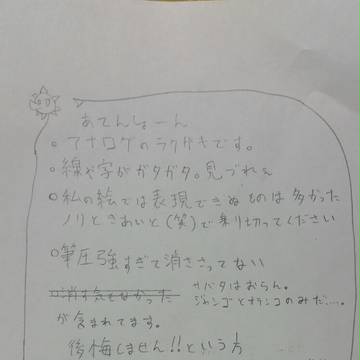 あてんしょーん
○アナログのラクガキです。
○線や字がガタガタ。見づれぇ
○私の絵では表現できぬものは多かった
ノリときあいと(笑)で乗り切ってください
○筆圧強すぎて消ささってない
○消す気もなかった
サバタはおらん。
ジャンゴとオテンコのみだ…。
が含まれてます。
後悔しません!!という方